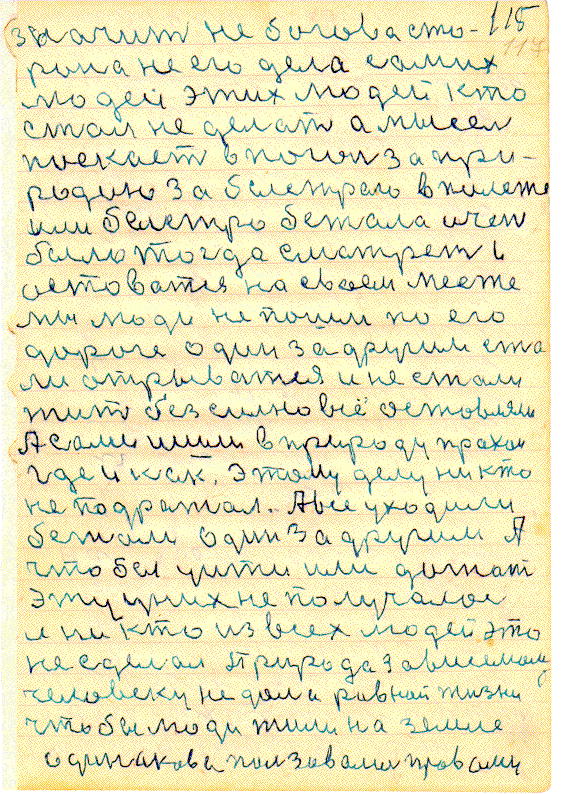 115
117
значит не богова сто-
рона не его дела самих
людей этих людей кто
стал не делат а мысел
поскает в погон за при-
родию за белстраю в пилете
или белстро бежала и чем
было тогда сматрет и
остоватя на своем месте
мы люди не пошли по его
дороге один за другим ста
ли отрыватся и не стали
жит безсилно всё оставляли
А сами шли в природу прахом
где и как. Этому делу никто
не подражал. А все уходили
бежали один за другим А
что бел уйти или догнат
эту у них не получалос
и ни кто из всех людей это
не сделал Природа за
человеку не дола равной жизни
что бы люди жили на земле
одинакова ползовали правами